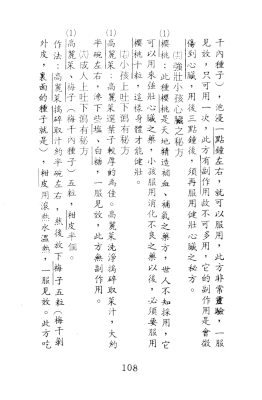 干內種子)，泡浸一點鐘左右，就可以服用，此方非常靈驗，一服
見效，只可用一次，此方有副作用故不可多用，它的副作用是會微
傷到心臟，用後三點鐘後，須再服用健壯心臟之秘方。
㈣強壯小孩心臟之秘方
櫻桃：此種櫻桃是天地精補血、補氣之藥方，世人不知採用，它
可以用來強壯心臟之藥，小孩服用消化不良之藥以後，必須要服用
櫻桃十粒，這樣身體才能健壯。
小孩上吐下瀉有秘方
⑴高麗菜：高麗菜選葉子較厚的為佳。高麗菜洗淨搗碎取菜汁，大約
半碗左右，滲下些塩、白糖，一服見效，此方無副作用。
成人上吐下瀉有秘方
⑴高麗菜、梅子(梅干內種子)五粒，柑皮半個。
作法：高麗菜搗碎取汁約半碗左右，然後放下梅子五粒(梅干剝
外皮，裏面的種子就是)，柑皮用滾熱水溫熱，一服見效。此方吃
108